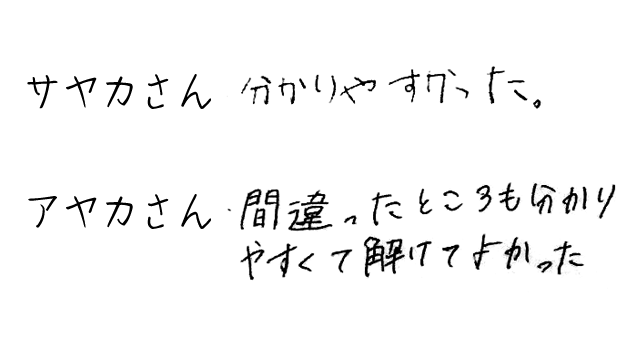 サヤカさん 分かりやすかった。
アヤカさん 間違ったところも分かり
やすくて解けてよかった